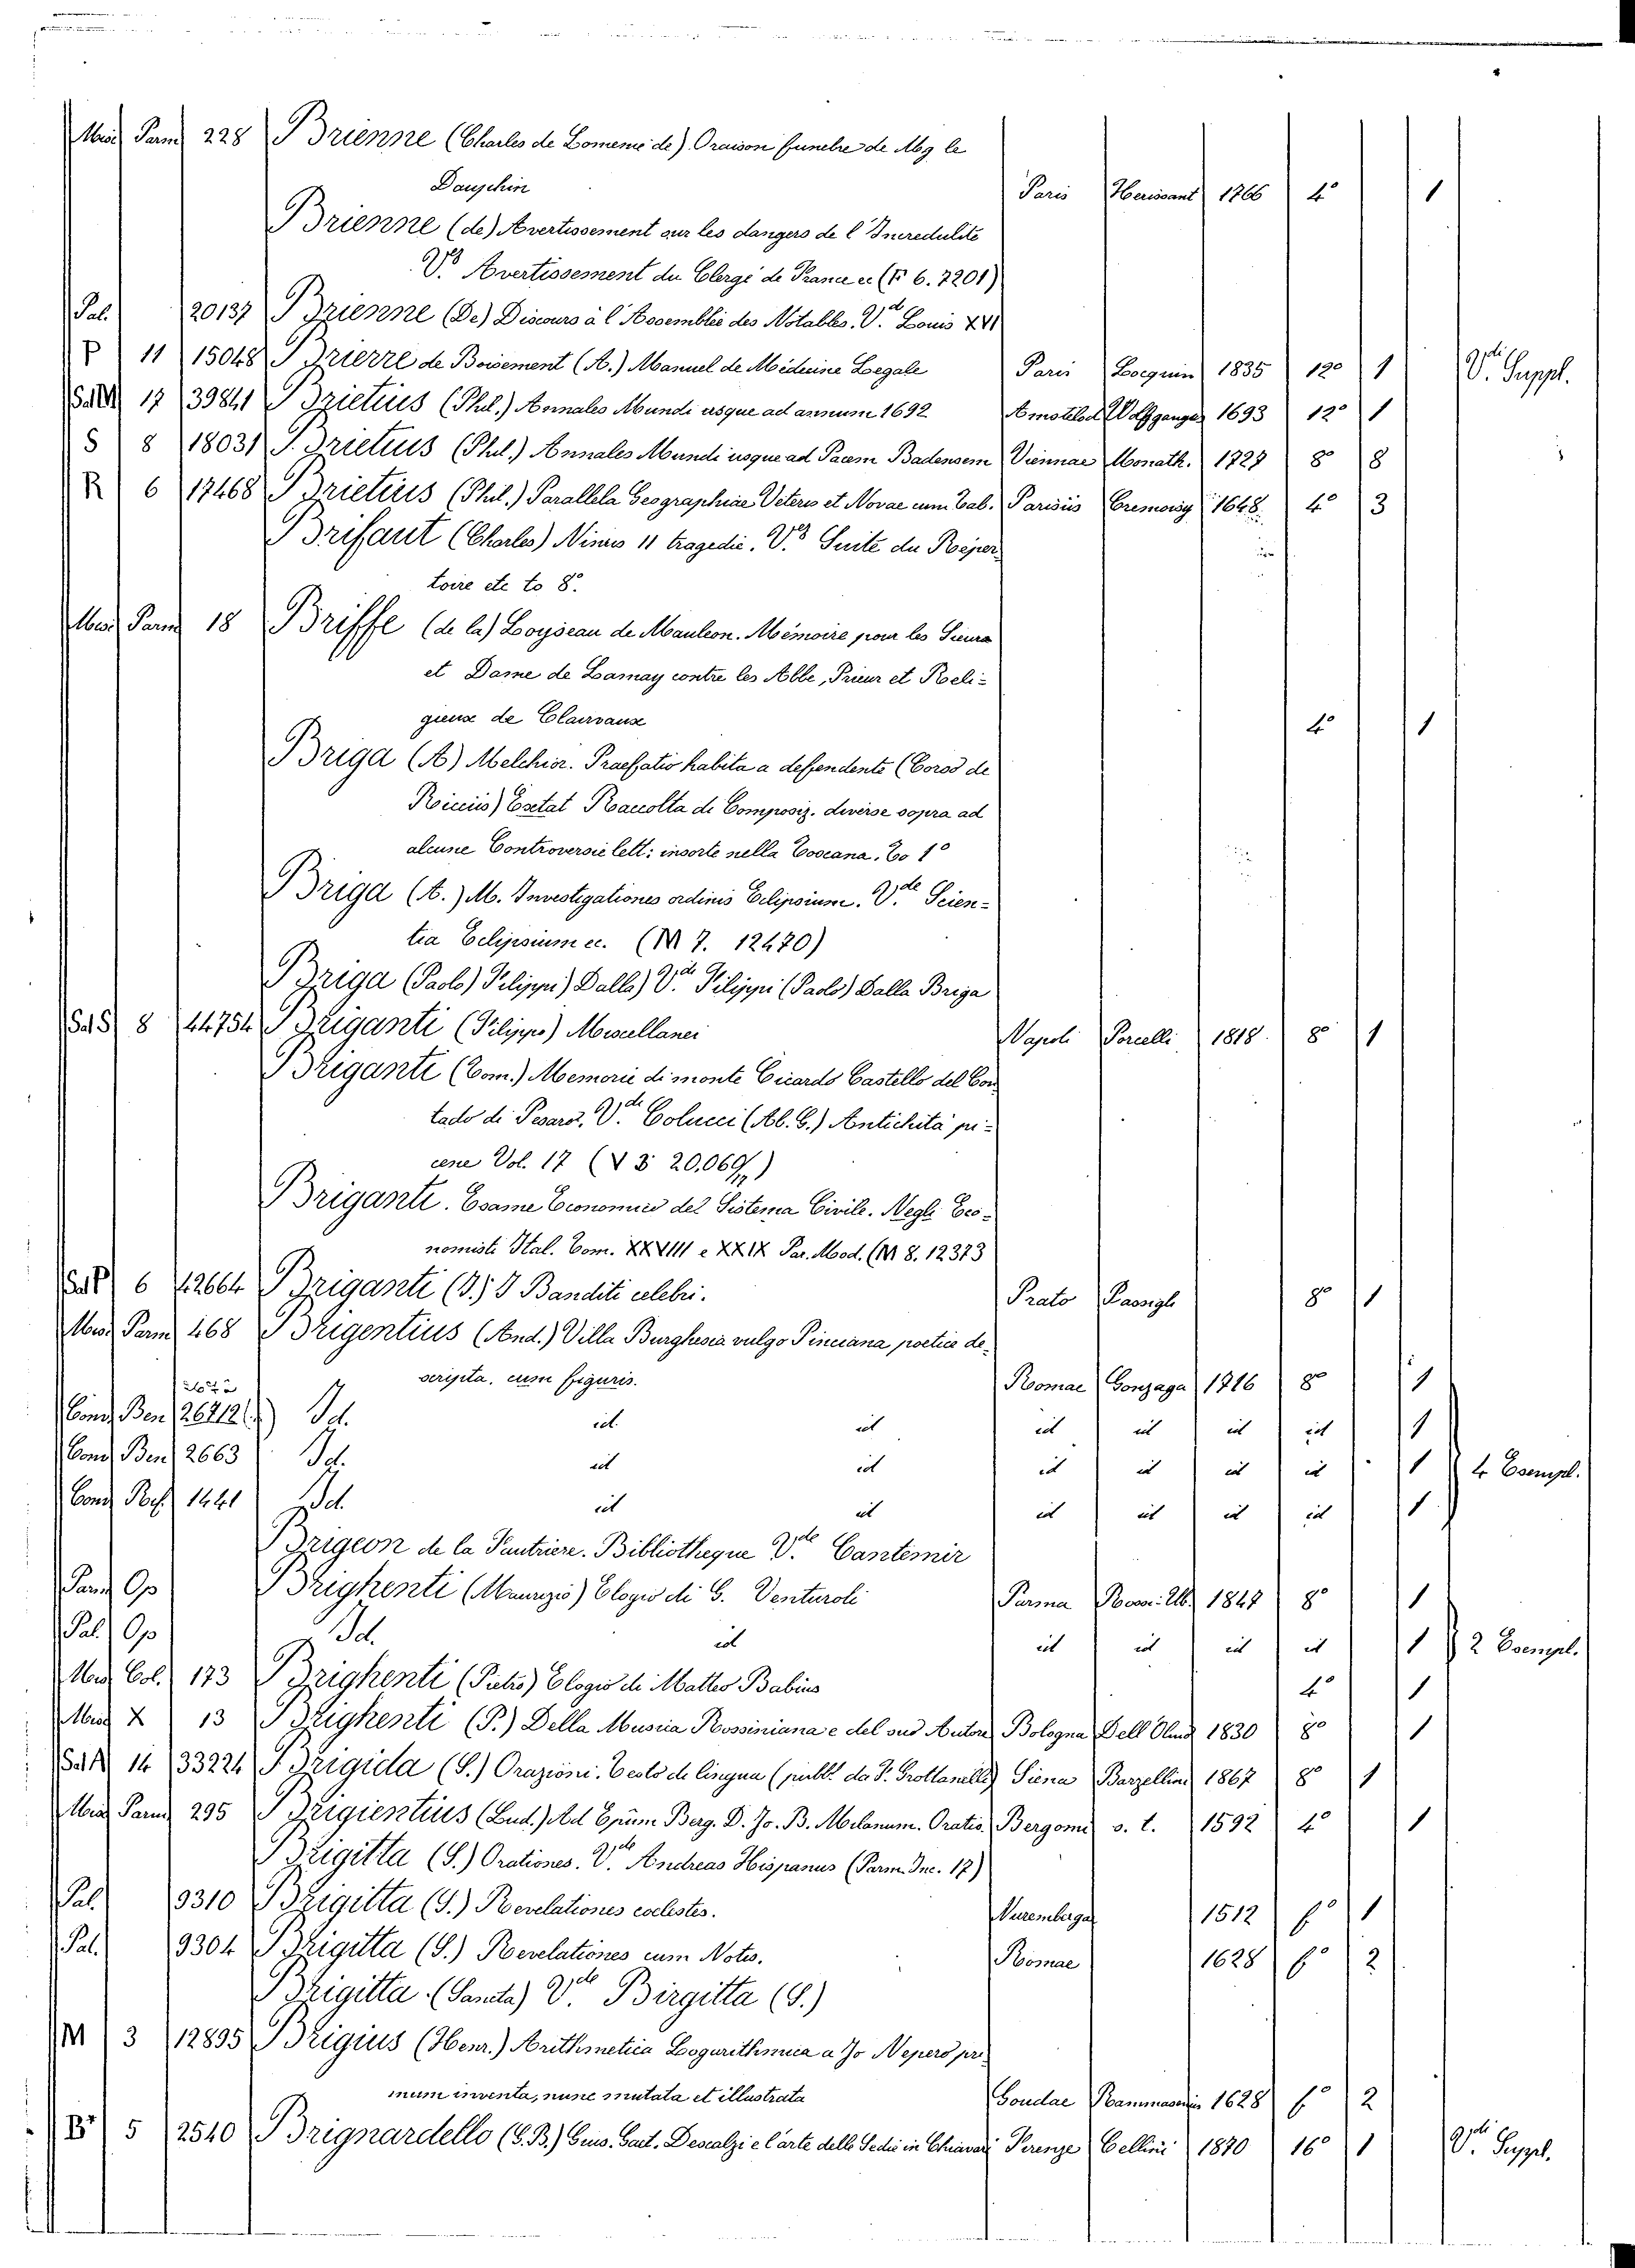 Misc Parm 228 Brienne (Charles de Lomenie de) Oraison funebre de Mg le
Dauphin Paris Herissant 1766 4° 1
Brienne (de) Avertissement sur les dangers de l'Incredulite
V.° Avertissement du Clergé de France ec (F 6. 7201)
Pal. 20137 Brienne (De) Discours à l'Assemblée des Notables. V.d Louis XVI
P 11 15048 Brierre de Boisement (A.) Manuel de Médicine Legale Paris Locquin 1835 12° 1 V.di Suppl.
Sal M 17 39841 Brietius (Phil.) Annales Mundi usque ad annum 1692 Amstelod Wolfganger 1693 12° 1
S 8 18031 Brietius (Phil.) Annales Mundi usque ad Pacem Badensem Viennae Monath. 1727 8° 8
R 6 17468 Brietius (Phil.) Parallela Geographiae Veteris et Novae cum Tab. Parisiis Cremoisy 1648 4° 3
Brifaut (Charles) Ninus II tragedie. V.° Suite du Réper-
toire etc to 8°.
Misc Parm 18 Briffe (de la) Loyseau de Mauleon. Mémoire pour les Sieurs
et Dame de Lamay contre les Abbe, Prieur et Reli-
gieux de Clairvaux 4° 1
Briga (A) Melchior. Praefatio habita a deffendente (Coros de
Ricciis) Extat Raccolta di Composiz. diverse sopra ad
alcune Controversie lett: insorte nella Toscana. To 1°
Briga (A.) M. Investigationes ordinis Eclipsium. V.de Scien-
tia Eclipsium ec. (M 7. 12470)
Briga (Paolo) Filippi) Dalla) V.de Filippi (Paolo) Dalla Briga
Sal S 8 44754 Briganti (Filippo) Miscellanei Napoli Porcelli 1818 8° 1
Briganti (Tom.) Memorie di monte Cicardo Castello del Con
tado di Pesaro, V.de Colucci (Ab. G.) Antichità pi-
cene Vol. 17 (V 3 20,069)
Briganti. Esame Economico del Sistema Civile. Negli Eco-
nomisti Ital. Tom. XXVIII e XXIX Par. Mod. (M 8. 12373
Sal P 6 42664 Briganti (I.) I Banditi celebri. Prato Passigli 8° 1
Misc Parm 468 Brigentius (And.) Villa Burghesia vulgo Pinciana poetice de-
scripta, cum figuris. Romae Gonzaga 1716 8° 1
Cond Ben 26212 Id. id. id id id id id 1
Cond Ben 2663 Id. id id id id id id 1 4 Esempl.
Cond Ref 1441 Id. id id id id id id 1
Brigeon de la Pantriere. Bibliotheque V.de Cantemir
Parm Op Brighenti (Maurizio) Elogio di G. Venturoli Parma Rossi-Ub. 1847 8° 1
Pal. Op Id. id id id id id 1 2 Esempl.
Misc Col. 173 Brighenti (Pietro) Elogio di Matteo Babini 4° 1
Misc X 13 Brighenti (P.) Della Musica Rossiniana e del suo Autore Bologna Dell'Olmo 1830 8° 1
Sal N 14 33224 Brigida (S.) Orazioni. Testo di lingua (pubbl. da F. Grottanelli) Siena Barzellini 1867 8° 1
Misc Parm 295 Brigientius (Lud.) Ad Epum Berg. D. Jo. B. Milanum. Oratio Bergomi s. t. 1592 4° 1
Brigitta (S.) Orationes. V.de Andreas Hispanus (Parm. Inc. 17)
Pal. 9310 Brigitta (S.) Revelationes coelestes. Nuremberga 1512 f° 1
Pal. 9304 Brigitta (S.) Revelationes cum Notis. Romae 1628 f° 2
Brigitta (Sancta) V.de Birgitta (S.)
M 3 12895 Brigius (Henr.) Arithmetica Logarithmica a Jo Nepero pri-
mum inventa, nunc mutata et illustrata Goudae Rammasenius 1628 f° 2
B 5 2540 Brignardello (G.B.) Gius. Gaet. Descalzi e l'arte delle Sedie in Chiavari Firenze Cellini 1870 16° 1 V.di Suppl.